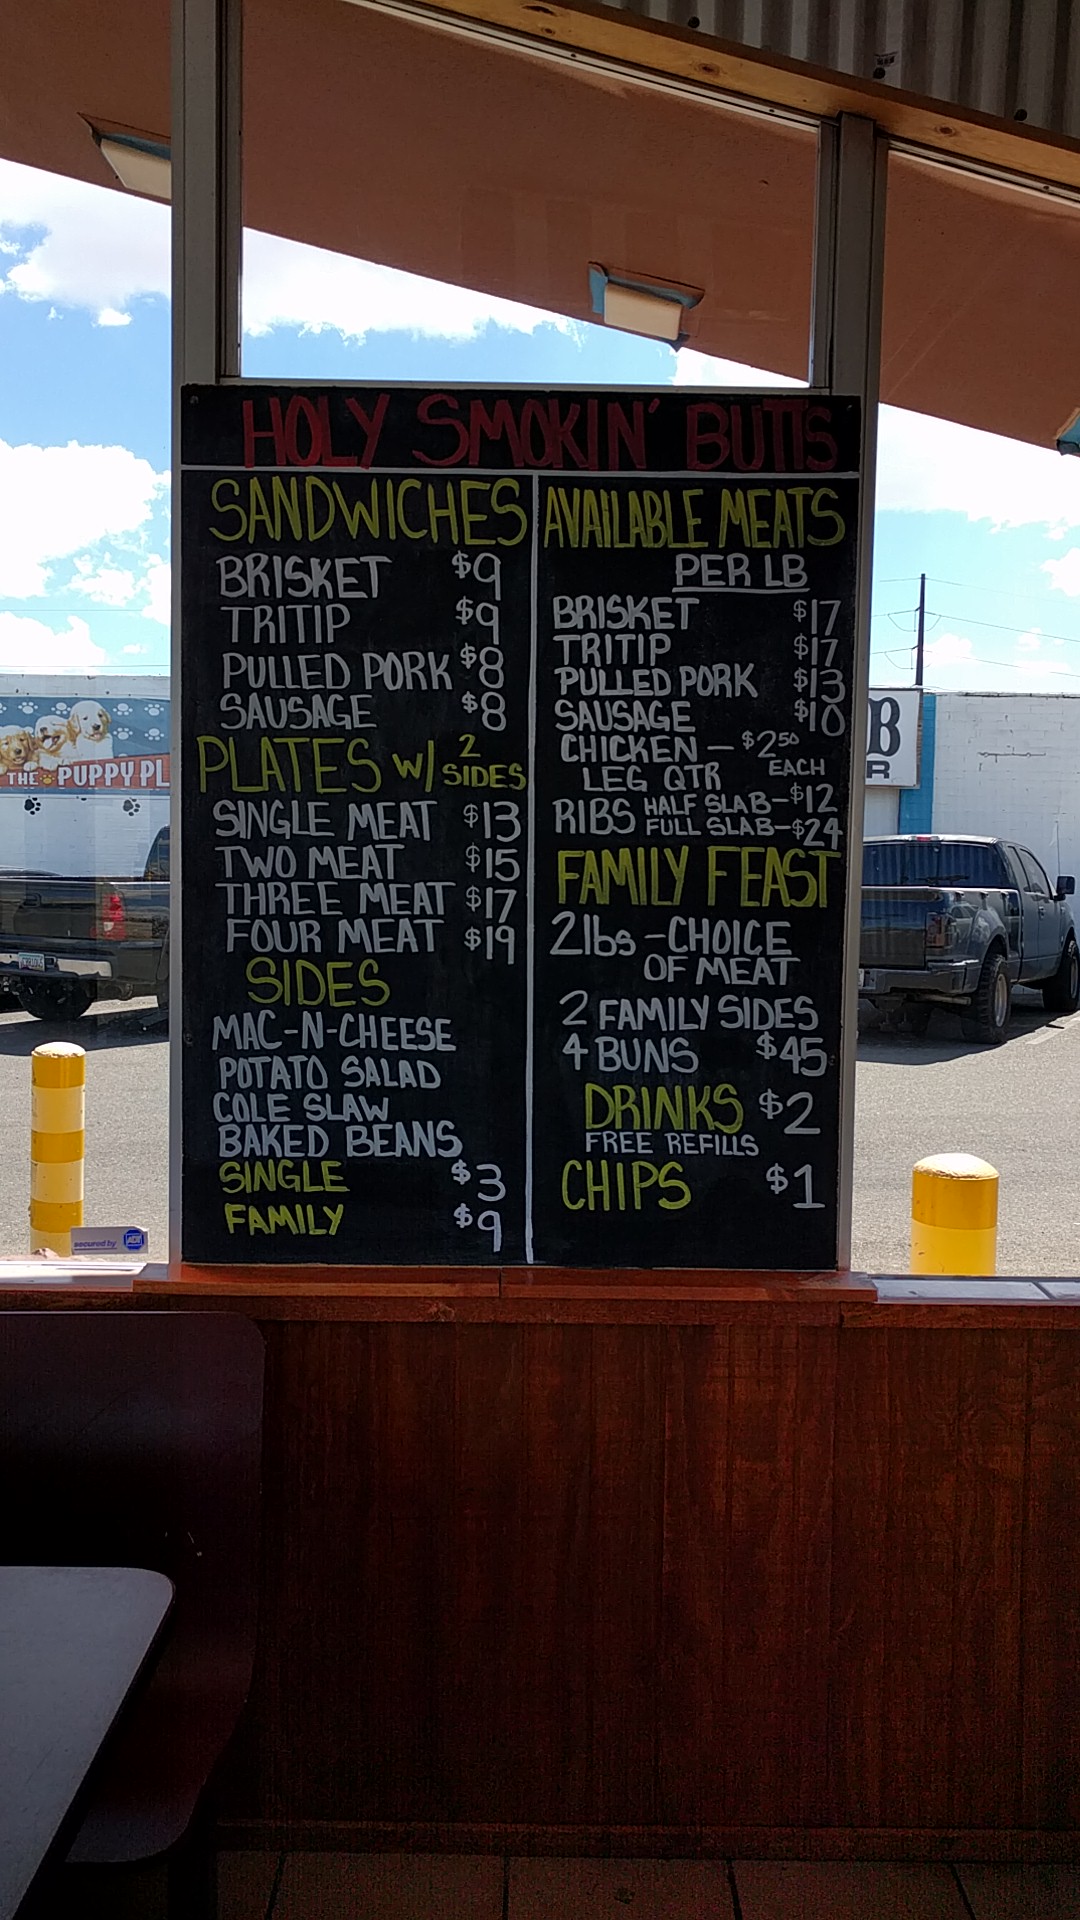 HOLY SMOKIN' BUTTS
SANDWICHES
BRISKET $9
TRITIP $9
PULLED PORK $8
SAUSAGE $8
PLATES w/ 2 SIDES
SINGLE MEAT $13
TWO MEAT $15
THREE MEAT $17
FOUR MEAT $19
SIDES
MAC-N-CHEESE
POTATO SALAD
COLE SLAW
BAKED BEANS
SINGLE $3
FAMILY $9
AVAILABLE MEATS
PER LB
BRISKET $17
TRITIP $17
PULLED PORK $13
SAUSAGE $10
CHICKEN — $2⁵⁰
LEG QTR EACH
RIBS HALF SLAB-$12
FULL SLAB-$24
FAMILY FEAST
2lbs -CHOICE
OF MEAT
2 FAMILY SIDES
4 BUNS $45
DRINKS $2
FREE REFILLS
CHIPS $1
THE PUPPY PL
B
R
secured by ADT